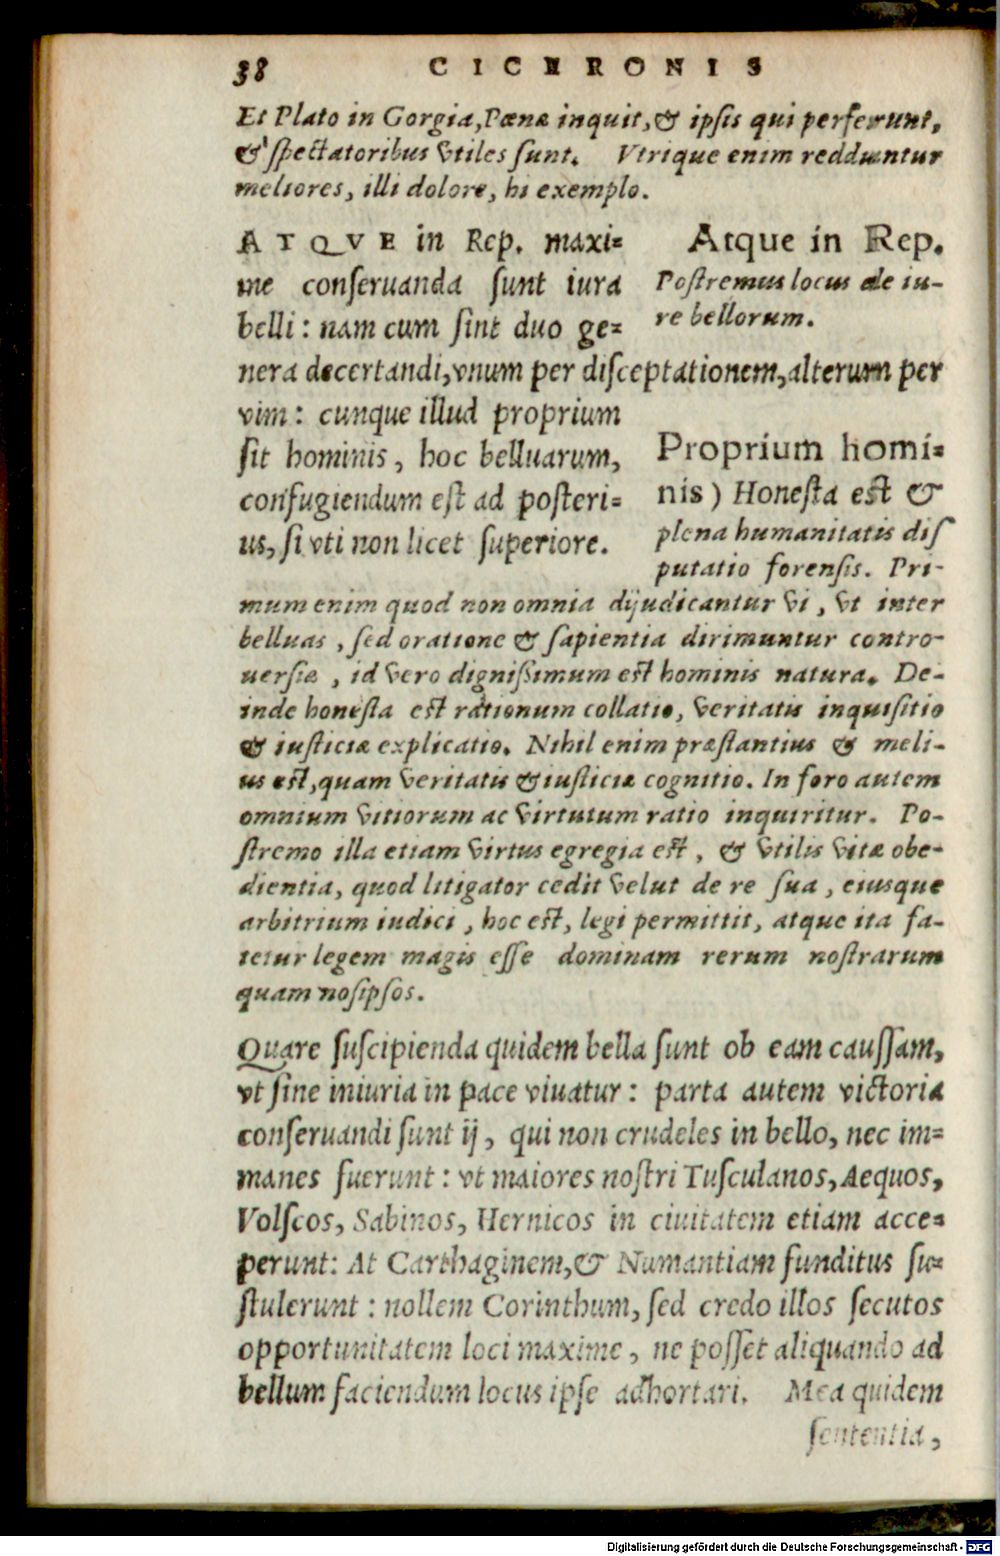 38 CICERONIS
Et Plato in Gorgia, Pœnæ inquit, & ipsis qui perferunt,
& spectatoribus vtiles sunt. Vtrique enim redduntur
meliores, illi dolore, hi exemplo.
ATQVE in Rep. maxi=
me conseruanda sunt iura
belli: nam cum sint duo ge=
Atque in Rep.
Postremus locus de iu-
re bellorum.
nera decertandi, vnum per disceptationem, alterum per
vim: cunque illud proprium
sit hominis, hoc belluarum,
confugiendum est ad posteri=
us, si vti non licet superiore.
Proprium homi=
nis) Honesta est &
plena humanitatis dis
putatio forensis. Pri-
mum enim quod non omnia dijudicantur vi, vt inter
belluas, sed oratione & sapientia dirimuntur contro-
uersiæ, id vero dignissimum est hominis natura. De-
inde honesta est rationum collatio, veritatis inquisitio
& iusticiæ explicatio. Nihil enim præstantius & meli-
us est, quam veritatis & iusticiæ cognitio. In foro autem
omnium vitiorum ac virtutum ratio inquiritur. Po-
stremo illa etiam virtus egregia est, & vtilis vitæ obe-
dientia, quod litigator cedit velut de re sua, eiusque
arbitrium iudici, hoc est, legi permittit, atque ita fa-
tetur legem magis esse dominam rerum nostrarum
quam nosipsos.
Quare suscipienda quidem bella sunt ob eam caussam,
vt sine iniuria in pace viuatur: parta autem victoria
conseruandi sunt ij, qui non crudeles in bello, nec im=
manes fuerunt: vt maiores nostri Tusculanos, Aequos,
Volscos, Sabinos, Hernicos in ciuitatem etiam acce=
perunt: At Carthaginem, & Numantiam funditus su=
stulerunt: nollem Corinthum, sed credo illos secutos
opportunitatem loci maxime, ne posset aliquando ad
bellum faciendum locus ipse adhortari. Mea quidem
sententia,
Digitalisierung gefördert durch die Deutsche Forschungsgemeinschaft - DFG